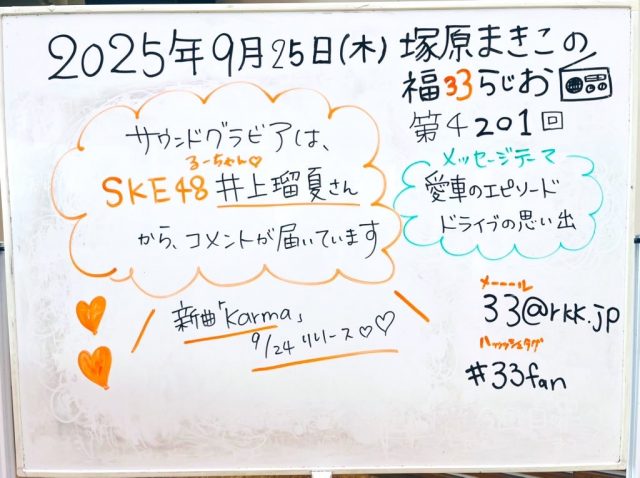 2025年9月25日(木) 塚原まきこの
福33らじお
第4201回
サウンドグラビアは、
るーちゃん♡
SKE48 井上瑠夏さん
から、コメントが届いています
メッセージテーマ
愛車のエピソード
ドライブの思い出
新曲「Karma」
9/24 リリース♡♡
メーール
33@rkk.jp
ハッシュタグ
#33fan